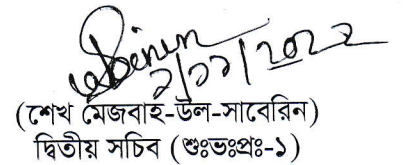 ২/১১/২০২২
(শেখ মেজবাহ-উল-সাবেরিন)
দ্বিতীয় সচিব (শুঃভঃপ্রঃ-১)